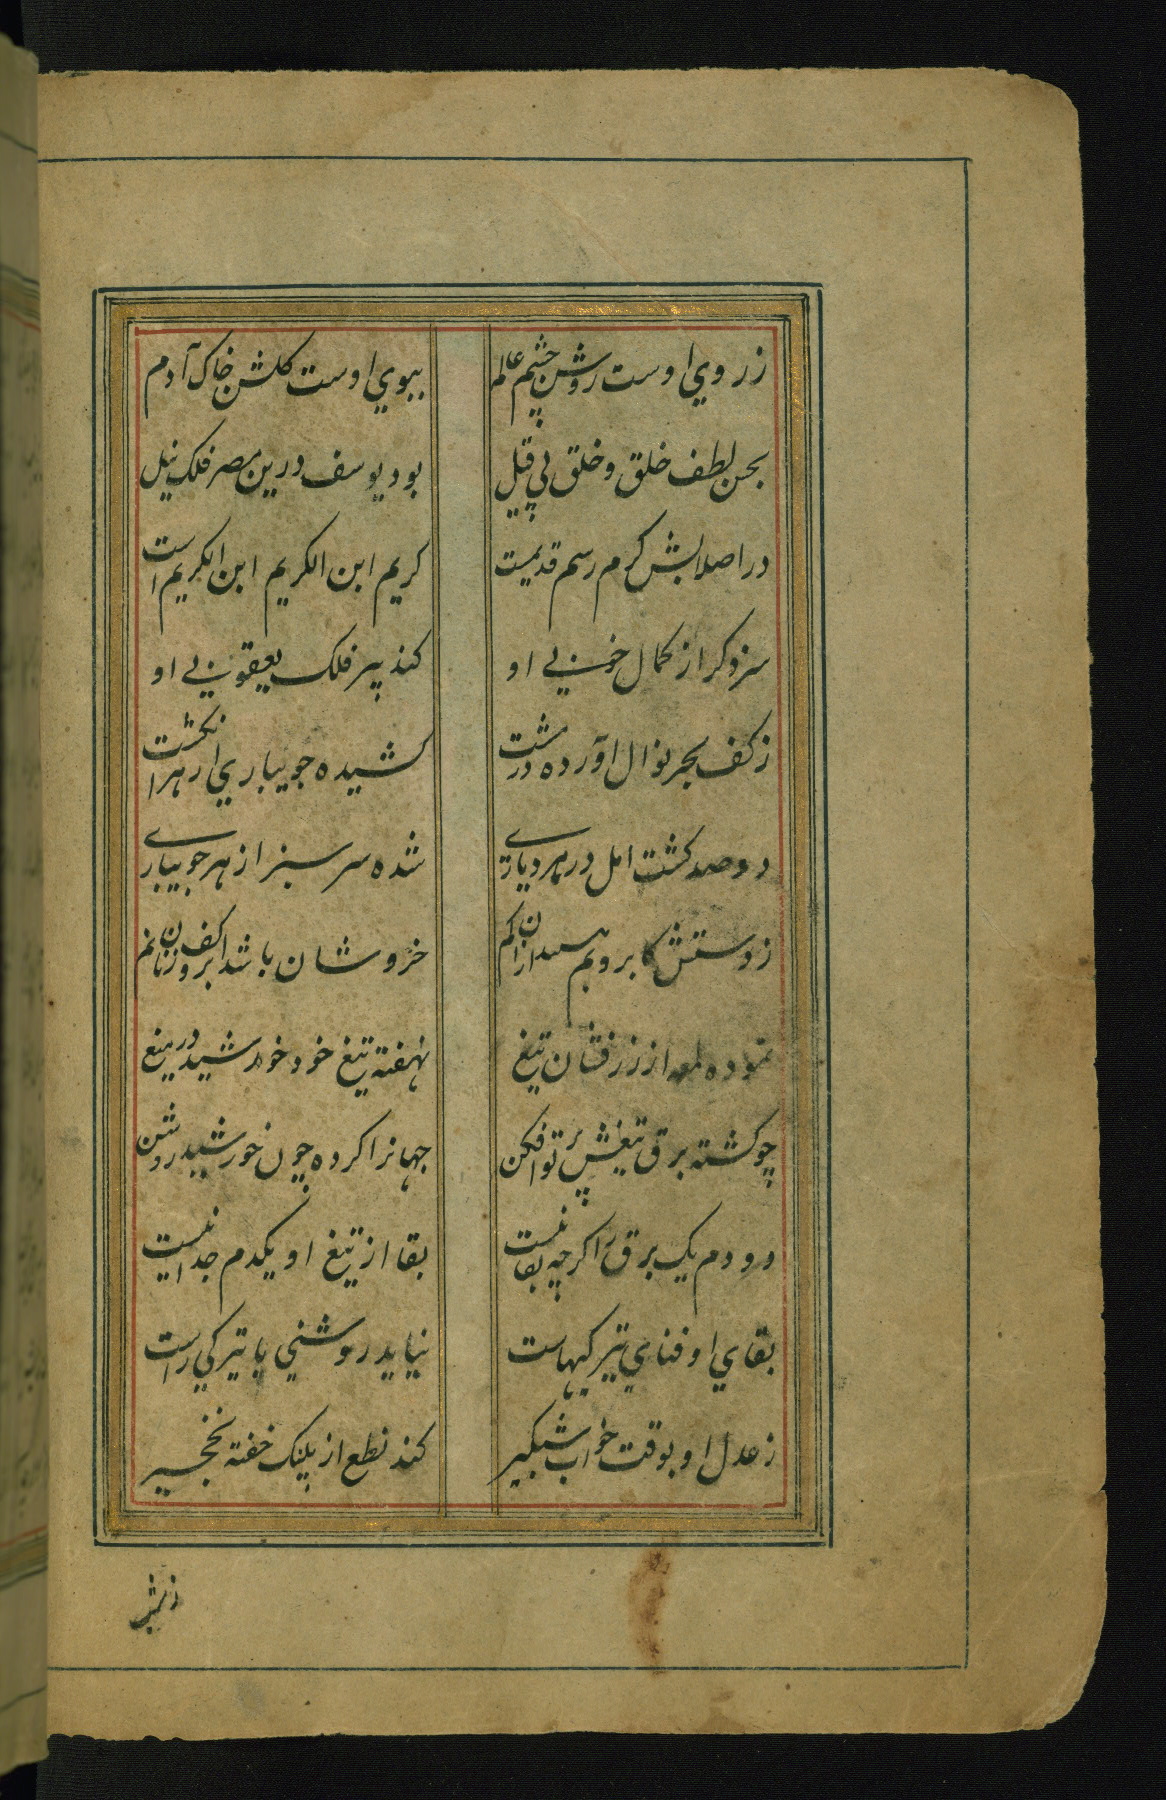 ز روي اوست روشن چشم عالم ببوي اوست كلشن خاك آدم
بحسن لطف خلق و خلق بي قيل بود يوسف درين مصر فلك نيل
در اصلابش كرم رسم قديمست كريم ابن الكريم ابن الكريم است
سزد كر از كمال خوبي او كند پير فلك يعقوبي او
ز كف بحر نوال آورده در مشت كشيده جويباري از هر انكشت
دو صد كشت امل در هر دياري شده سرسبز از هر جويباري
ز دستش كابر و يم خروشان باشد ابر و
نموده لمعه از زرفشان تيغ نهفته تيغ خود خورشيد در ميغ
چو كشته برق تيغش پرتو افكن جهانرا كرده چون خورشيد روشن
دو دم يك برق را كر چه بقا نيست بقا از تيغ او يكدم جدا نيست
بقاي او فناي تيركيهاست نيايد روشني با تيركي راست
ز عدل او بوقت خواب شبكير كند نطع از پلنك خفته نخجير